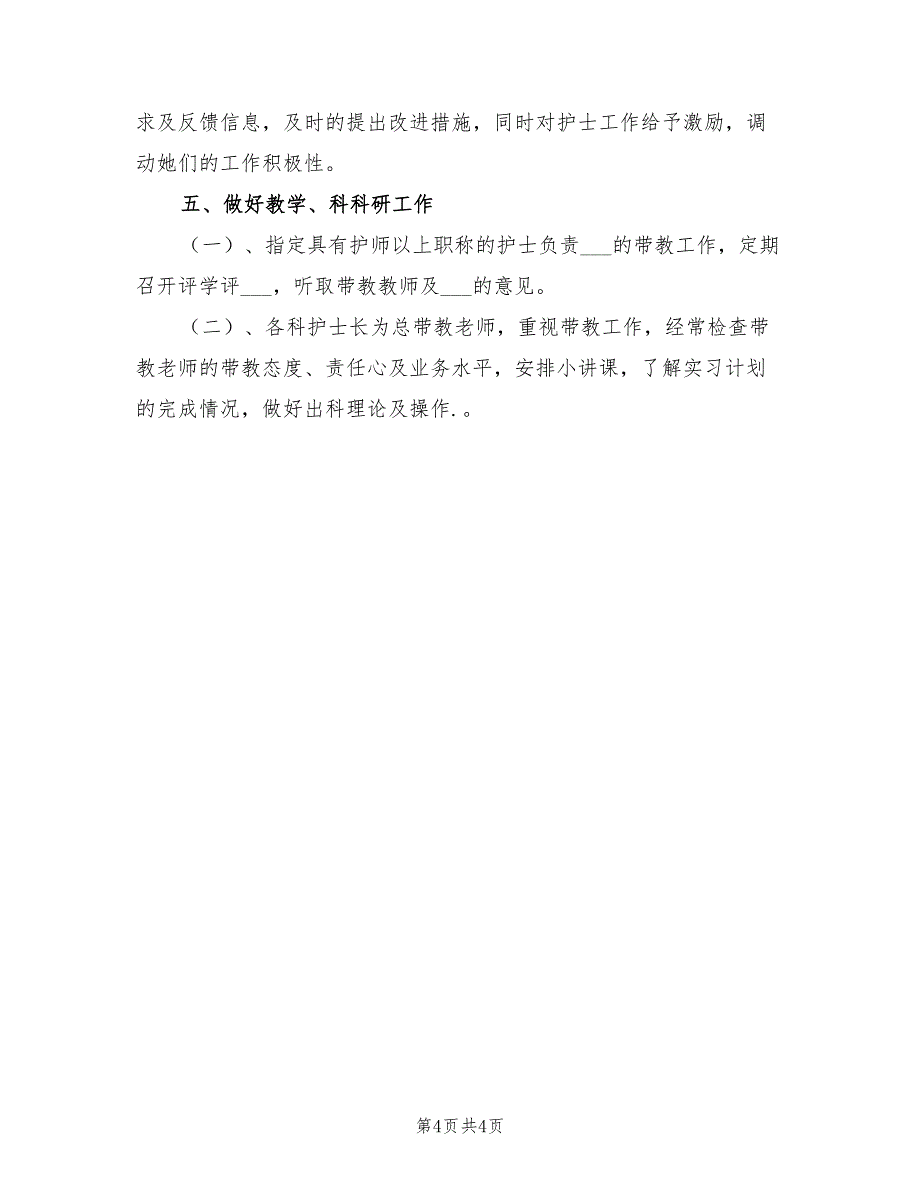 求及反馈信息，及时的提出改进措施，同时对护士工作给予激励，调
动她们的工作积极性。
五、做好教学、科科研工作
（一）、指定具有护师以上职称的护士负责___的带教工作，定期
召开评学评___，听取带教教师及___的意见。
（二）、各科护士长为总带教老师，重视带教工作，经常检查带
教老师的带教态度、责任心及业务水平，安排小讲课，了解实习计划
的完成情况，做好出科理论及操作.。
第4页共4页